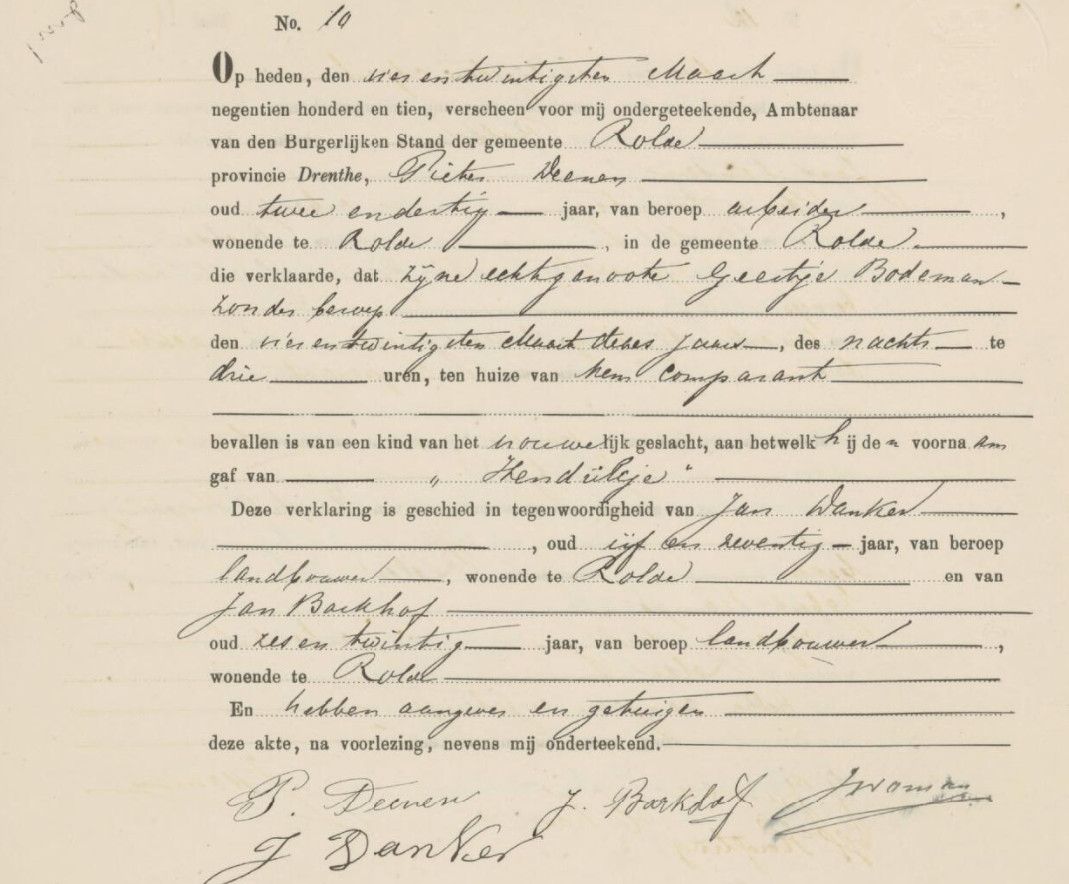 No. 10
Op heden, den vier en twintigsten Maart
negentien honderd en tien, verscheen voor mij ondergeteekende, Ambtenaar
van den Burgerlijken Stand der gemeente Rolde
provincie Drenthe, Pieter Deenen
oud twee endertig jaar, van beroep arbeider,
wonende te Rolde, in de gemeente Rolde.
die verklaarde, dat zijne echtgenoote Geertije Bodeman
zonder beroep
den vier en twintigsten Maart dezes jaars, des nachts te
drie uren, ten huize van hem comparant
bevallen is van een kind van het vrouwelijk geslacht, aan hetwelk hij den voornaam
gaf van „ Hendrikje "
Deze verklaring is geschied in tegenwoordigheid van Jan Danker
, oud vijf en zeventig jaar, van beroep
landbouwer, wonende te Rolde en van
Jan Barkhof
oud zes en twintig jaar, van beroep landbouwer,
wonende te Rolde
En hebben aangever en getuigen
deze akte, na voorlezing, nevens mij onderteekend.
P. Deenen J. Barkhof
J Danker